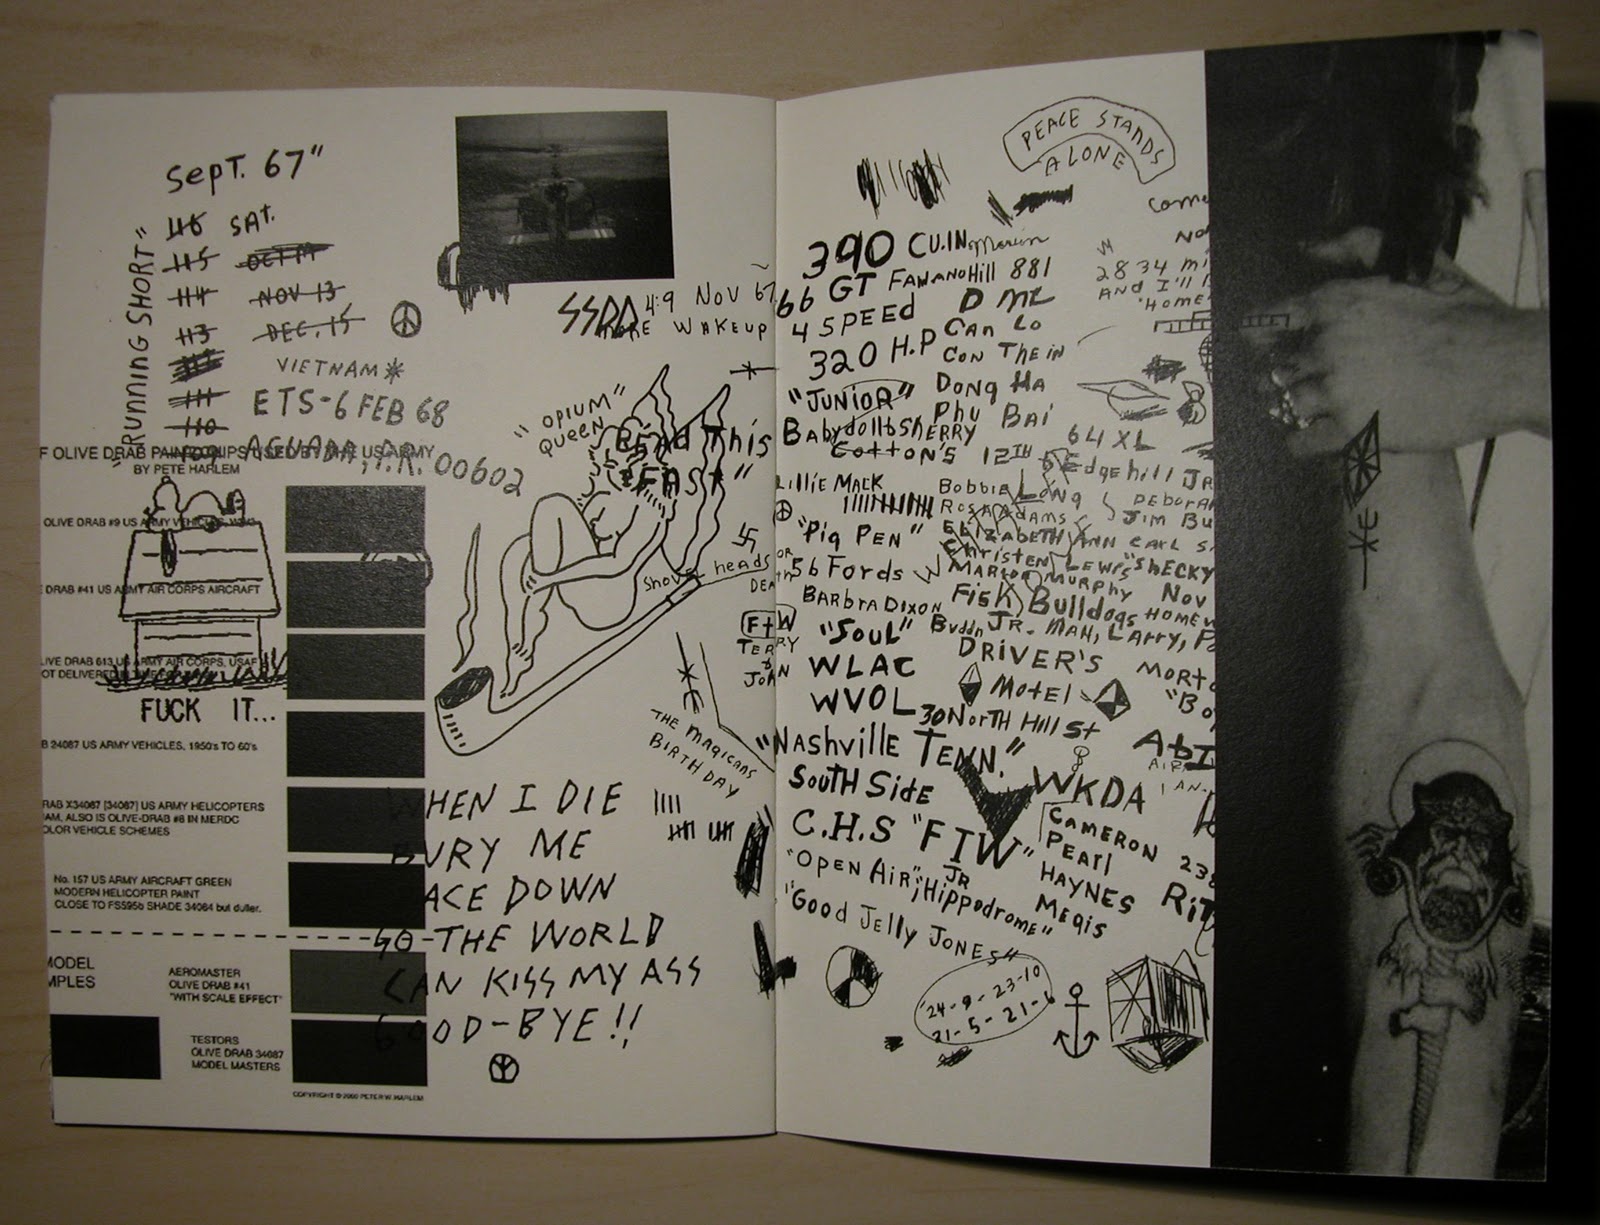 Sept. 67"
"RUNNING SHORT"
116 SAT.
115 OCT 14
114 NOV 13
113 DEC. 15
111
110
109
VIETNAM
ETS-6 FEB 68
AGUADA, P.R. 00602
F OLIVE DRAB PAINT CHIPS USED BY THE US ARMY
BY PETE HARLEM
OLIVE DRAB #9 US ARMY VEHICLES, WW2
DRAB #41 US ARMY AIR CORPS AIRCRAFT
IVE DRAB 613 US ARMY AIR CORPS, USAF
OT DELIVERED IN TIME FOR
FUCK IT...
B 24087 US ARMY VEHICLES, 1950's TO 60's
RAB X34087 [34087] US ARMY HELICOPTERS
AM, ALSO IS OLIVE-DRAB #8 IN MERDC
OLOR VEHICLE SCHEMES
No. 157 US ARMY AIRCRAFT GREEN
MODERN HELICOPTER PAINT
CLOSE TO FS595b SHADE 34064 but duller.
MODEL
MPLES
AEROMASTER
OLIVE DRAB #41
"WITH SCALE EFFECT"
TESTORS
OLIVE DRAB 34087
MODEL MASTERS
COPYRIGHT © 2000 PETER W. HARLEM
4:9 NOV 67
MORE WAKEUP
"OPIUM
QUEEN"
Read This
FAST"
Shovel heads
OR
DEATH
FTW
TERRY
&
JOHN
THE MAGICANS
BIRTH DAY
WHEN I DIE
BURY ME
ACE DOWN
SO THE WORLD
CAN KISS MY ASS
GOOD-BYE!!
PEACE STANDS
ALONE
390 CU.IN
66 GT FAWANOHill 881
4 SPEED DMZ
320 H.P Can Lo
Con Thein
"JUNIOR" Dong Ha
Phu Bai
Babydoll & SHERRY
Cotton's 12TH & Edgehill JR
64 XL
Lillie Mack
Bobbie Long
Rosa Adams
DEBORAH
Jim Bu
"Pig Pen"
ELIZABETH Ann Earl S
Christen Lewis "SHECKY
56 Fords
Marion Murphy Nov
BARBRA DIXON
Fisk Bulldogs HOMEW
"SOUL" Buddn JR. MAN, LARRY, P
WLAC DRIVER'S MORT
WVOL Motel "Bo
30 North Hill St
"Nashville TENN."
South Side WKDA
C.H.S "FTW"
CAMERON
PEARl
HAYNES
MEGIS
238
RiT
"OPEN AIR", JR
"Hippodrome"
"Good Jelly Jones"
24-9-23-10
21-5-21-
Come
No
28 34 mi
AND I'll
"HOME"